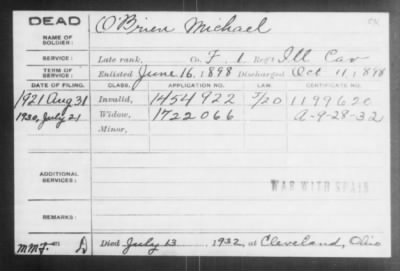 DEAD
O'Brien Michael
NAME OF
SOLDIER:
SERVICE:
Late rank, Co. F, 1 Reg't Ill Cav
TERM OF
SERVICE:
Enlisted June 16, 1898 Discharged Oct 11, 1898
DATE OF FILING.
CLASS.
APPLICATION NO.
LAW.
CERTIFICATE NO.
1921 Aug 31
Invalid, 1454922 J/20 1199620
1932, July 21
Widow, 1722066 A-9-28-32
Minor,
ADDITIONAL
SERVICES:
WAR WITH SPAIN
REMARKS:
Died July 13 1932, at Cleveland, Ohio